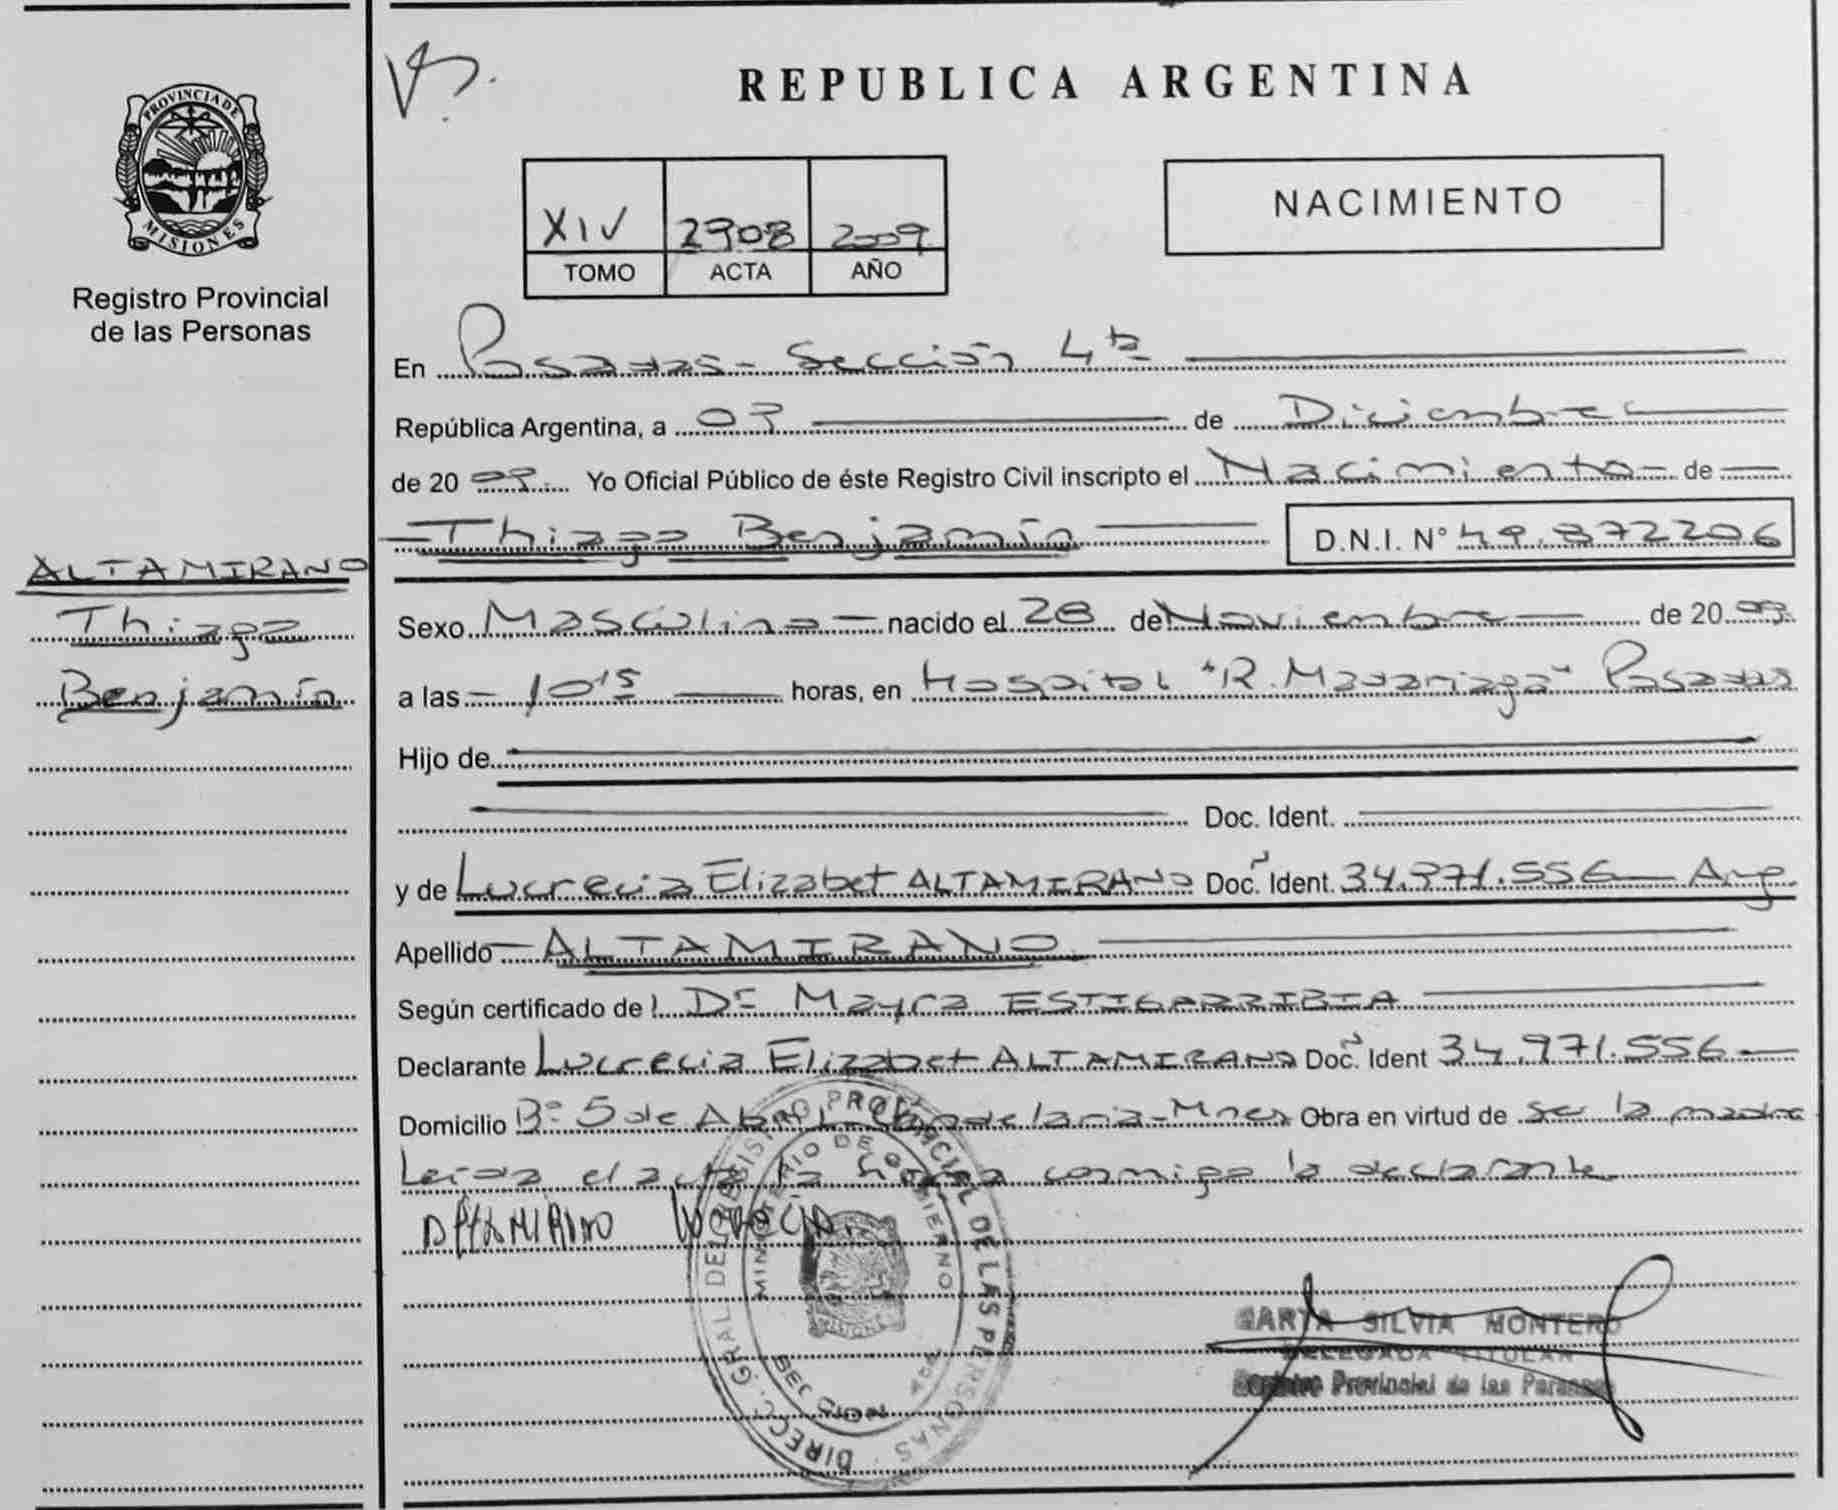 PROVINCIA DE
MISIONES
Registro Provincial
de las Personas
ALTAMIRANO
Thiago
Benjamín
REPUBLICA ARGENTINA
XIV 2908 2009
TOMO ACTA AÑO
NACIMIENTO
En Posadas - Sección 4ta
República Argentina, a 03 de Diciembre
de 20 09. Yo Oficial Público de éste Registro Civil inscripto el Nacimiento de
Thiago Benjamín D.N.I. N° 49.872206
Sexo Masculino nacido el 28 de Noviembre de 20 09.
a las 10 15 horas, en Hospital "R. Madariaga" Posadas
Hijo de
Doc. Ident.
y de Lucrecia Elizabet ALTAMIRANO Doc. Ident. 34.971.556 Arg
Apellido ALTAMIRANO
Según certificado de Dra Mayra ESTIGARRIBIA
Declarante Lucrecia Elizabet ALTAMIRANO Doc. Ident 34.971.556
Domicilio B° 5 de Abril - Candelaria - Mnes Obra en virtud de ser la madre
Leída el acta la firma conmigo la declarante
ALTAMIRANO Lucrecia
DIRECC. GRAL. DEL REGISTRO PROVINCIAL DE LAS PERSONAS
MINISTERIO DE GOBIERNO
SECCION
SILVIA MONTERO
DELEGADA TITULAR
Registro Provincial de las Personas